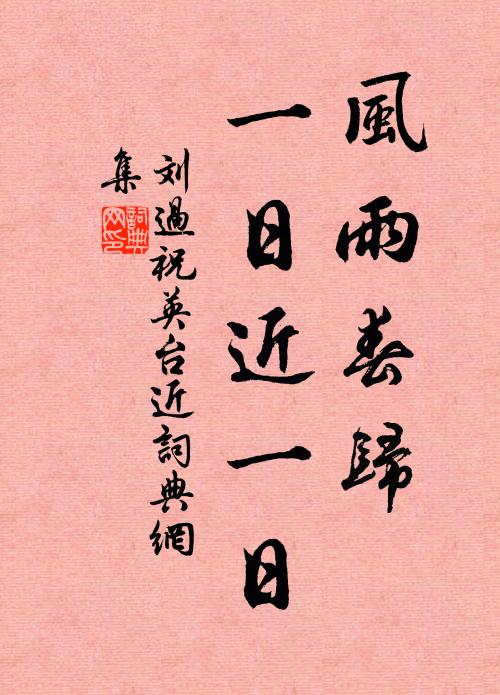 風雨春歸
一日近一日
刘過祝英台近詞典網
集
詞典
网印